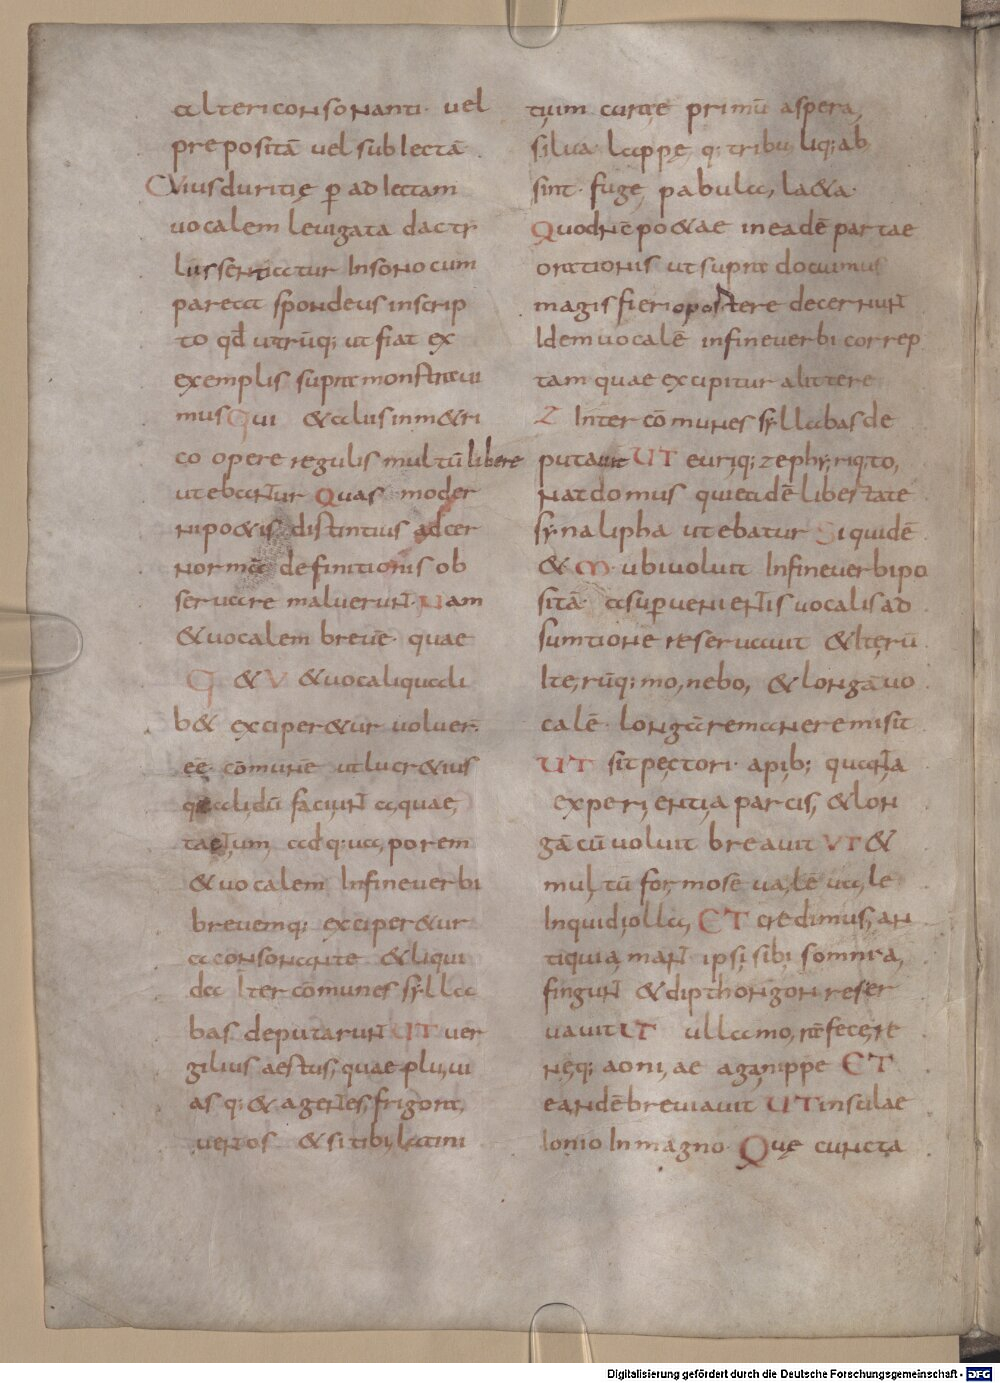 alteri consonanti· vel
prepositā vel sublectā
Cuius duritię p̄ adlectam
vocalem levigata dactr
lus sentiatur In sono cum
pareat spondeus inscrip
to qđ utrūq; ut fiat ex
exemplis supra monstravi
mus Qui & alus in m&ri
co opere regulis multū libere
utebantur Quas moder
ni po&is distintius ad cer
nor mā definitionis ob
servare malverunt Nam
& vocalem brevē· quae
Q & V & vocali quali
b& exciper&ur voluer̄
eē cōmunē ut lucr&ius
quae, lidū faciunt a, quae,
ta&um, adq: ua, porem
& vocalem In fine verbi
brevemq; exciper&ur
a consonante & liqui
da Iter cōmunes sylla
bas deputarunt UT ver
gilius aestus, quae plu, vi
as q; & agentes, frigora,
ventos & si tibi, latini
tium curae primū aspera,
silva lappę q; tribu, liq; ab,
sint· fuge pabula, la&a·
Quod nē po&ae in eadē partae
orationis ut supra docuimus
magis fieri opostere decernunt
Idem vocalē in fine verbi correp
tam quae excipitur a littere
Z Inter cōmunes syllabas de
putavit UT euriq; zephy, riq; to,
nat domus qui eadē libertate
synalipha utebatur Siquidē
& M· ubi voluit In fine verbi po
sitā· a supervenientis vocalis ad
sumtione reservavit & Iterū
Ite, rūq; mo, nebo, & longā vo
calē· longā remanere misit
UT sit pectori· apib; quanta
experi, entia parcis, & lon
gā cū voluit breavit VT &
mul, tū for, mose va, lē va, le
Inquid iolla, ET credimus, an
tiquia, mant ipsi, sibi somnra,
fingunt & dipthongon reser
vavit UT ullamo, rē fece, re
neq; aoni, ae aganippe ET
eandē breviavit UT insulae
Ionio In magno· Quę cuncta
Digitalisierung gefördert durch die Deutsche Forschungsgemeinschaft - DFG